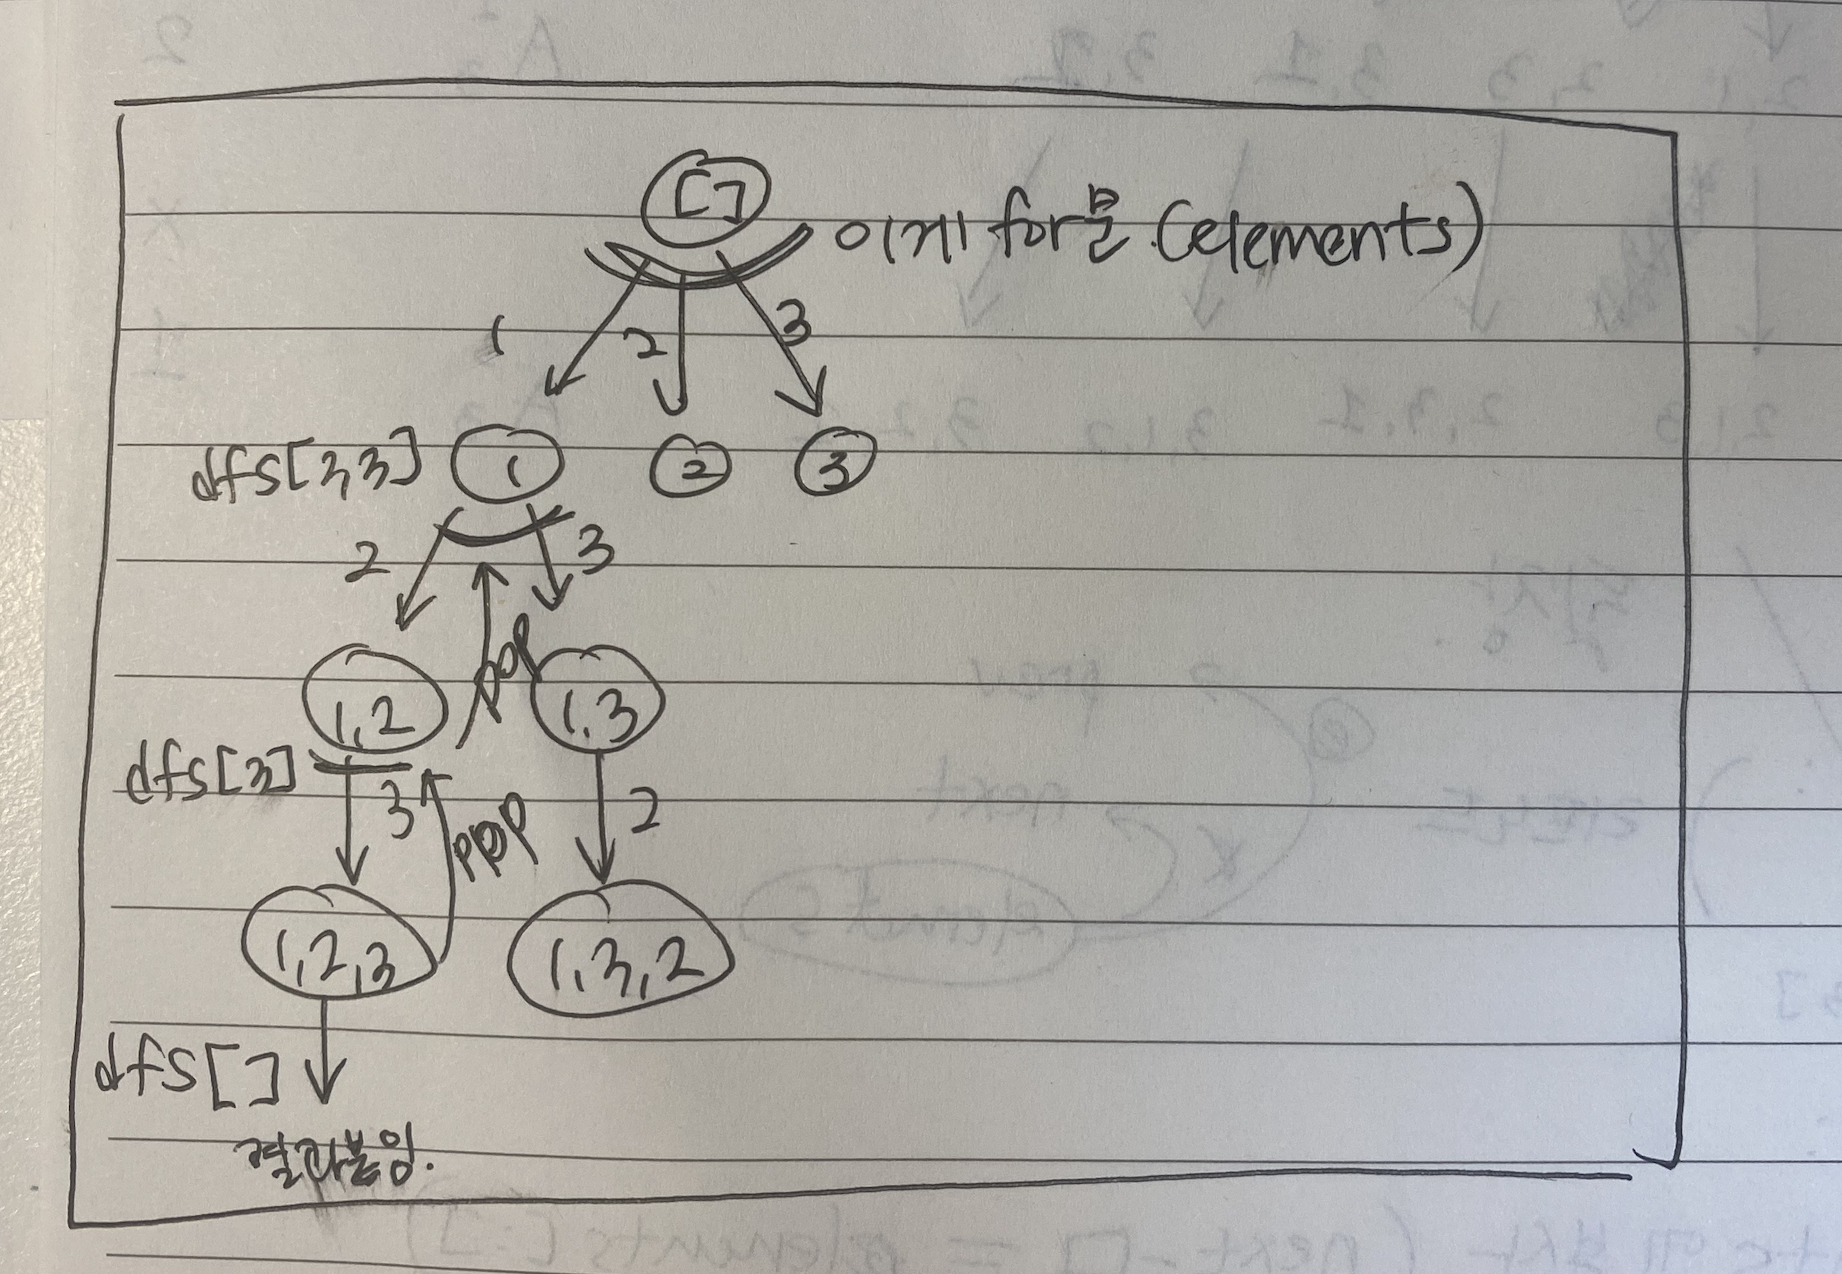 []
이게 for문 (elements)
1 2 3
dfs[2,3] 1 2 3
2 3
pop
1,2 1,3
dfs[3]
3 pop 2
1,2,3 1,3,2
dfs[]